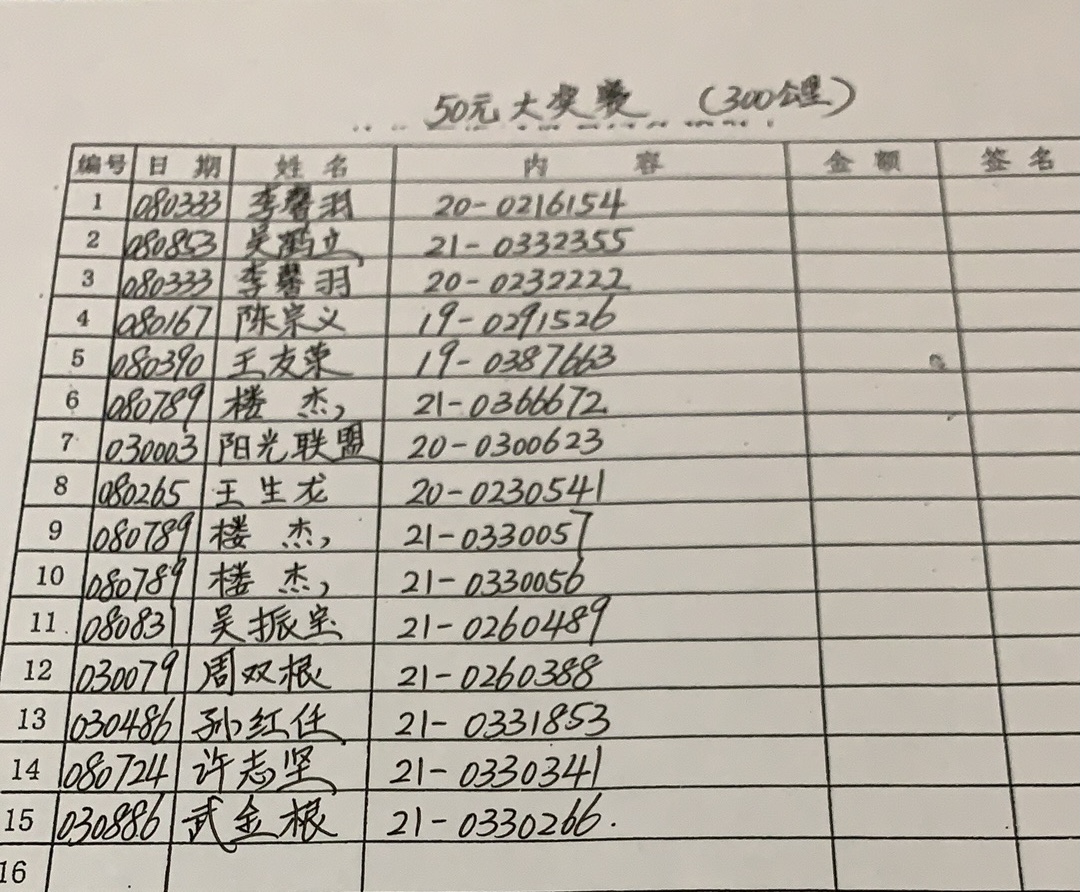 50元大奖赛 (300公里)
编号 日期 姓名 内容 金额 签名
1 080333 李馨羽 20-0216154
2 080853 吴鹤立 21-0332355
3 080333 李馨羽 20-0232222
4 080167 陈宗义 19-0291526
5 080390 王友荣 19-0387663
6 080789 楼杰, 21-0366672
7 030003 阳光联盟 20-0300623
8 080265 王生龙 20-0230541
9 080789 楼杰, 21-0330057
10 080789 楼杰, 21-0330056
11 080831 吴振宝 21-0260489
12 030079 周双根 21-0260388
13 030486 孙红任 21-0331853
14 080724 许志坚 21-0330341
15 030886 武金根 21-0330266.
16